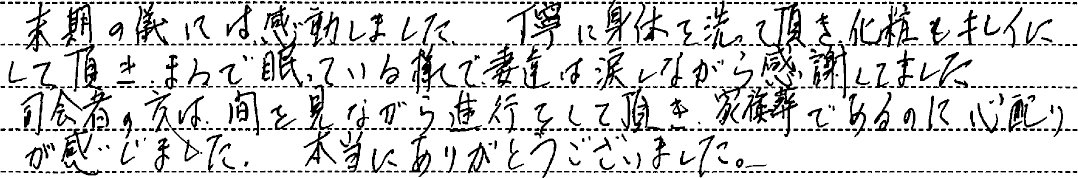 末期の儀には感動しました。丁寧に身体を洗って頂き、化粧もキレイに
して頂き、まるで眠っている様で妻達は涙しながら感謝してました
司会者の方は、間を見ながら進行をして頂き、家族葬であるのに心配り
が感じました。本当にありがとうございました。